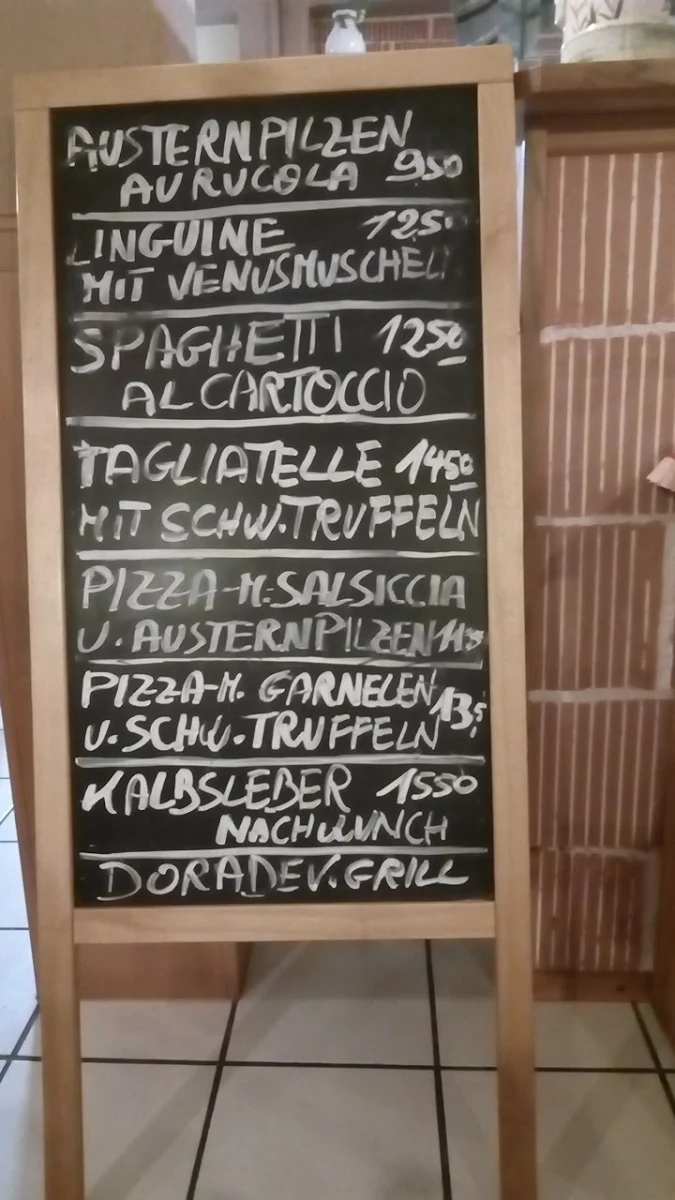 AUSTERNPILZEN
AU RUCOLA 950
LINGUINE 1250
MIT VENUSMUSCHELN
SPAGHETTI 1250
AL CARTOCCIO
TAGLIATELLE 1450
MIT SCHW. TRUFFELN
PIZZA-M. SALSICCIA
U. AUSTERNPILZEN
PIZZA-M. GARNELEN 13,5
U. SCHW. TRUFFELN
KALBSLEBER 1550
NACH WUNCH
DORADE V. GRILL